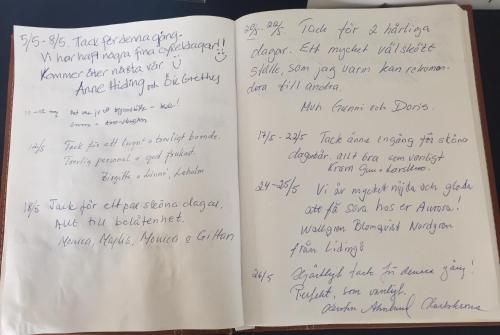 5/5-8/5. Tack för denna gång.
Vi har haft några fina cykeldagar!!
Kommer åter nästa vår
Anne Hiding och Åke Grethes
12/5 Tack för ett lugnt o trevligt boende.
Trevlig personal o god frukost.
Birgitta o Laholm
18/5 Tack för ett par sköna dagar,
Allt till belåtenhet.
Monica, Majlis, Monica o Gittan
20/5-22/5 Tack för 2 härliga
dagar. Ett mycket välskött
ställe, som jag varm kan rekommen-
dera till andra.
Mvh Gunni och Doris.
17/5-22/5 Tack ännu en gång för sköna
dagar här. Allt bra som vanligt
Kram Gun o
24-25/5 Vi är mycket nöjda och glada
att få sova hos er Aurora!
Wallgren Blomqvist Nordgren
från Lidingö
26/5 Hjärtligt tack för denna gång!
Perfekt, som vanligt.
Kerstin